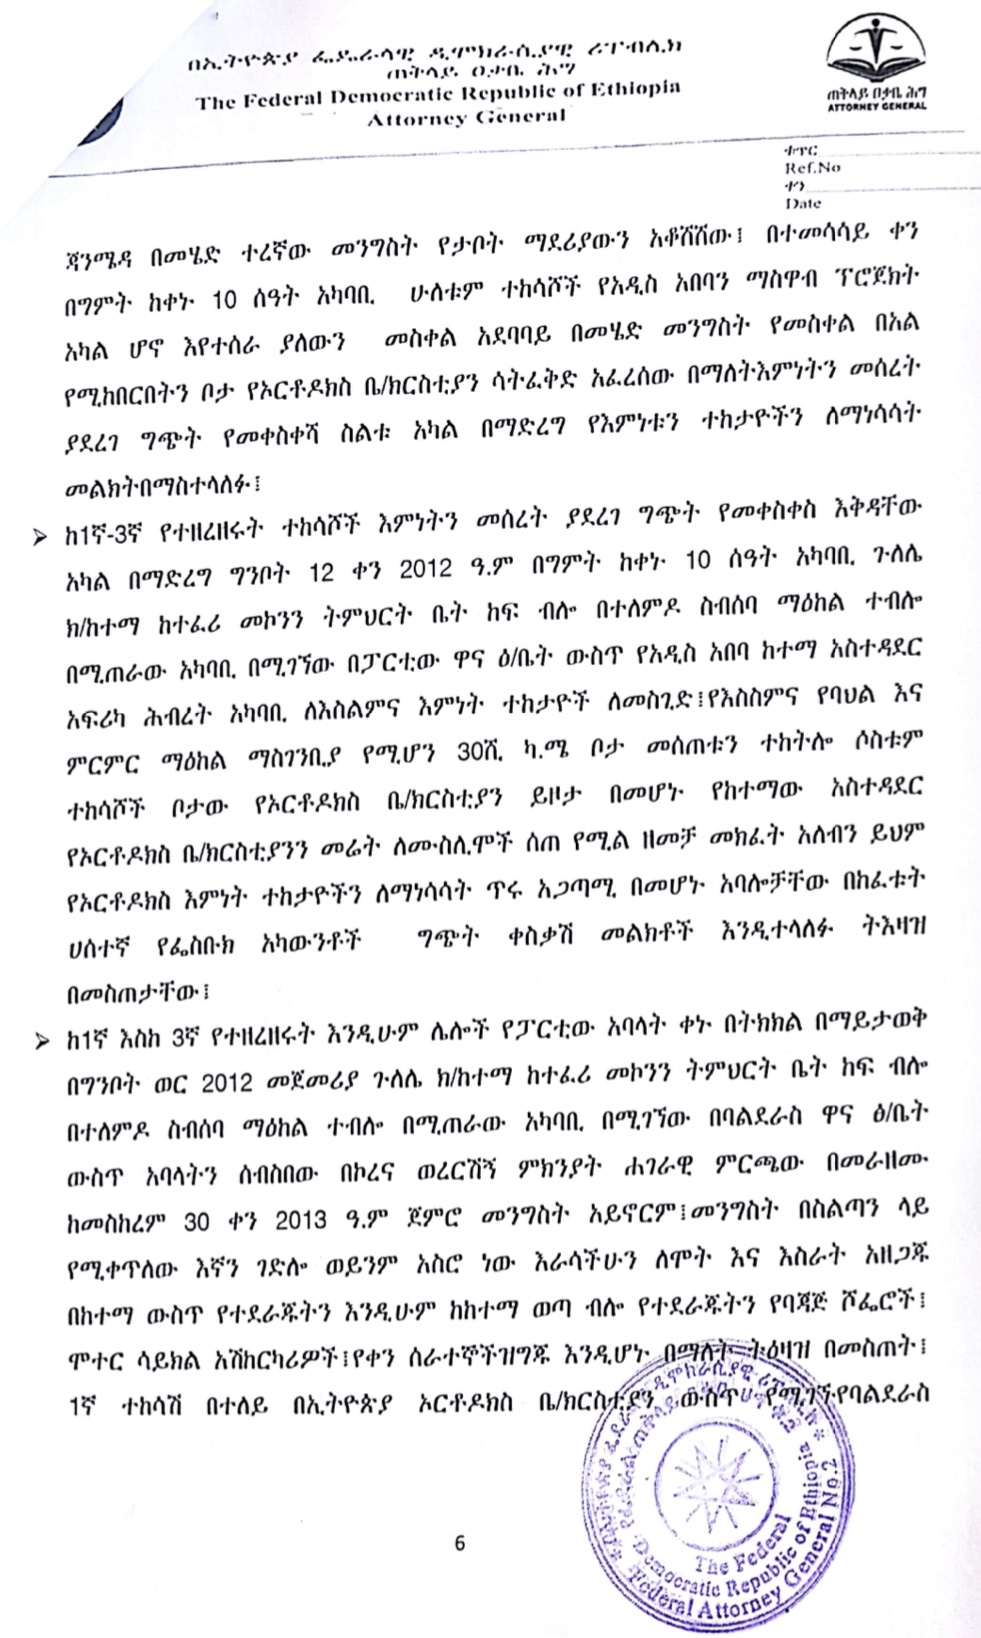 በኢትዮጵያ ፌዴራላዊ ዲሞክራሲያዊ ሪፐብሊክ
ጠቅላይ ዐቃቤ ሕግ
The Federal Democratic Republic of Ethiopia
Attorney General
ጠቅላይ ዐቃቤ ሕግ
ATTORNEY GENERAL
ቁጥር
Ref.No
ቀን
Date
ጃንሜዳ በመሄድ ተረኛው መንግስት የታቦት ማደሪያውን አቆሸሸው፤ በተመሳሳይ ቀን
በግምት ከቀኑ 10 ሰዓት አካባቢ ሁለቱም ተከሳሾች የአዲስ አበባን ማስዋብ ፕሮጀክት
አካል ሆኖ እየተሰራ ያለውን መስቀል አደባባይ በመሄድ መንግስት የመስቀል በአል
የሚከበርበትን ቦታ የኦርቶዶክስ ቤ/ክርስቲያን ሳትፈቅድ አፈረሰው በማለትእምነትን መሰረት
ያደረገ ግጭት የመቀስቀሻ ስልቱ አካል በማድረግ የእምነቱን ተከታዮችን ለማነሳሳት
መልክትበማስተላለፉ፤
➢ ከ1ኛ-3ኛ የተዘረዘሩት ተከሳሾች እምነትን መሰረት ያደረገ ግጭት የመቀስቀስ እቅዳቸው
አካል በማድረግ ግንቦት 12 ቀን 2012 ዓ.ም በግምት ከቀኑ 10 ሰዓት አካባቢ ጉለሌ
ክ/ከተማ ከተፈሪ መኮንን ትምህርት ቤት ከፍ ብሎ በተለምዶ ስብሰባ ማዕከል ተብሎ
በሚጠራው አካባቢ በሚገኘው በፓርቲው ዋና ዕ/ቤት ውስጥ የአዲስ አበባ ከተማ አስተዳደር
አፍሪካ ሕብረት አካባቢ ለእስልምና እምነት ተከታዮች ለመስጊድ፤የእስስምና የባህል እና
ምርምር ማዕከል ማስገንቢያ የሚሆን 30ሺ ካ.ሜ ቦታ መሰጠቱን ተከትሎ ሶስቱም
ተከሳሾች ቦታው የኦርቶዶክስ ቤ/ክርስቲያን ይዞታ በመሆኑ የከተማው አስተዳደር
የኦርቶዶክስ ቤ/ክርስቲያንን መሬት ለሙስሊሞች ሰጠ የሚል ዘመቻ መክፈት አለብን ይህም
የኦርቶዶክስ እምነት ተከታዮችን ለማነሳሳት ጥሩ አጋጣሚ በመሆኑ አባሎቻቸው በከፈቱት
ሀሰተኛ የፌስቡክ አካውንቶች ግጭት ቀስቃሽ መልክቶች እንዲተላለፉ ትእዛዝ
በመስጠታቸው፤
➢ ከ1ኛ እስከ 3ኛ የተዘረዘሩት እንዲሁም ሌሎች የፓርቲው አባላት ቀኑ በትክክል በማይታወቅ
በግንቦት ወር 2012 መጀመሪያ ጉለሌ ክ/ከተማ ከተፈሪ መኮንን ትምህርት ቤት ከፍ ብሎ
በተለምዶ ስብሰባ ማዕከል ተብሎ በሚጠራው አካባቢ በሚገኘው በባልደራስ ዋና ፅ/ቤት
ውስጥ አባላትን ሰብስበው በኮረና ወረርሽኝ ምክንያት ሐገራዊ ምርጫው በመራዘሙ
ከመስከረም 30 ቀን 2013 ዓ.ም ጀምሮ መንግስት አይኖርም፤መንግስት በስልጣን ላይ
የሚቀጥለው እኛን ገድሎ ወይንም አስሮ ነው እራሳችሁን ለሞት እና እስራት አዘጋጁ
በከተማ ውስጥ የተደራጁትን እንዲሁም ከከተማ ወጣ ብሎ የተደራጁትን የባጃጅ ሾፌሮች፤
ሞተር ሳይክል አሽከርካሪዎች፤የቀን ሰራተኞችዝግጁ እንዲሆኑ በማለት ትዕዛዝ በመስጠት፤
1ኛ ተከሳሽ በተለይ በኢትዮጵያ ኦርቶዶክስ ቤ/ክርስቲያን ውስጥ የሚገኙየባልደራስ
6
The Federal
Democratic Republic of Ethiopia
Federal Attorney General No.2